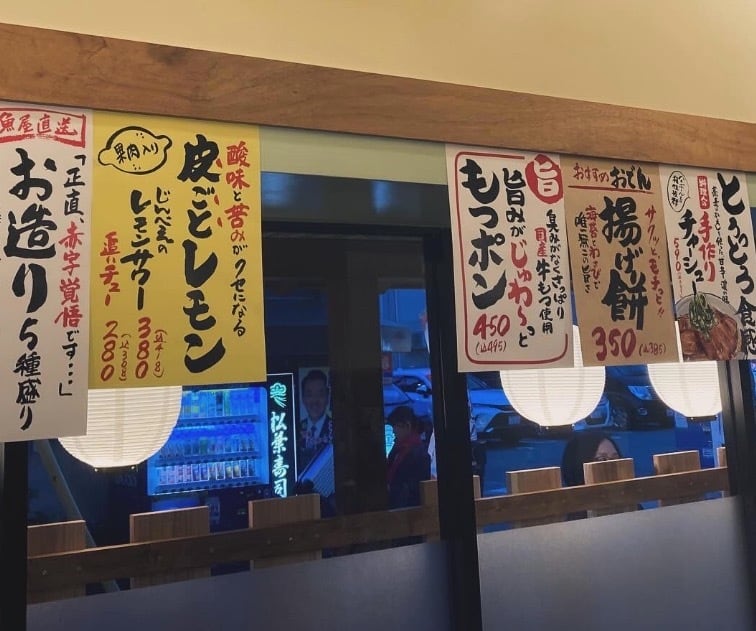 魚屋直送
「正直、赤字覚悟です…」
お造り5種盛り
果肉入り
酸味と苦みがクセになる
皮ごとレモン
じんべえの
レモンサワー
380
(込418)
追いチュー
280
(込308)
旨
臭みがなくさっぱり
国産牛もつ使用
旨みがじゅわ〜っと
もつポン
450
(込495)
おすすめおでん
サクッ、モチっ!!
揚げ餅
海苔とわさびで
350
(込385)
とろとろ食感
料理人の
手作り
チャーシュー
590
松葉寿司